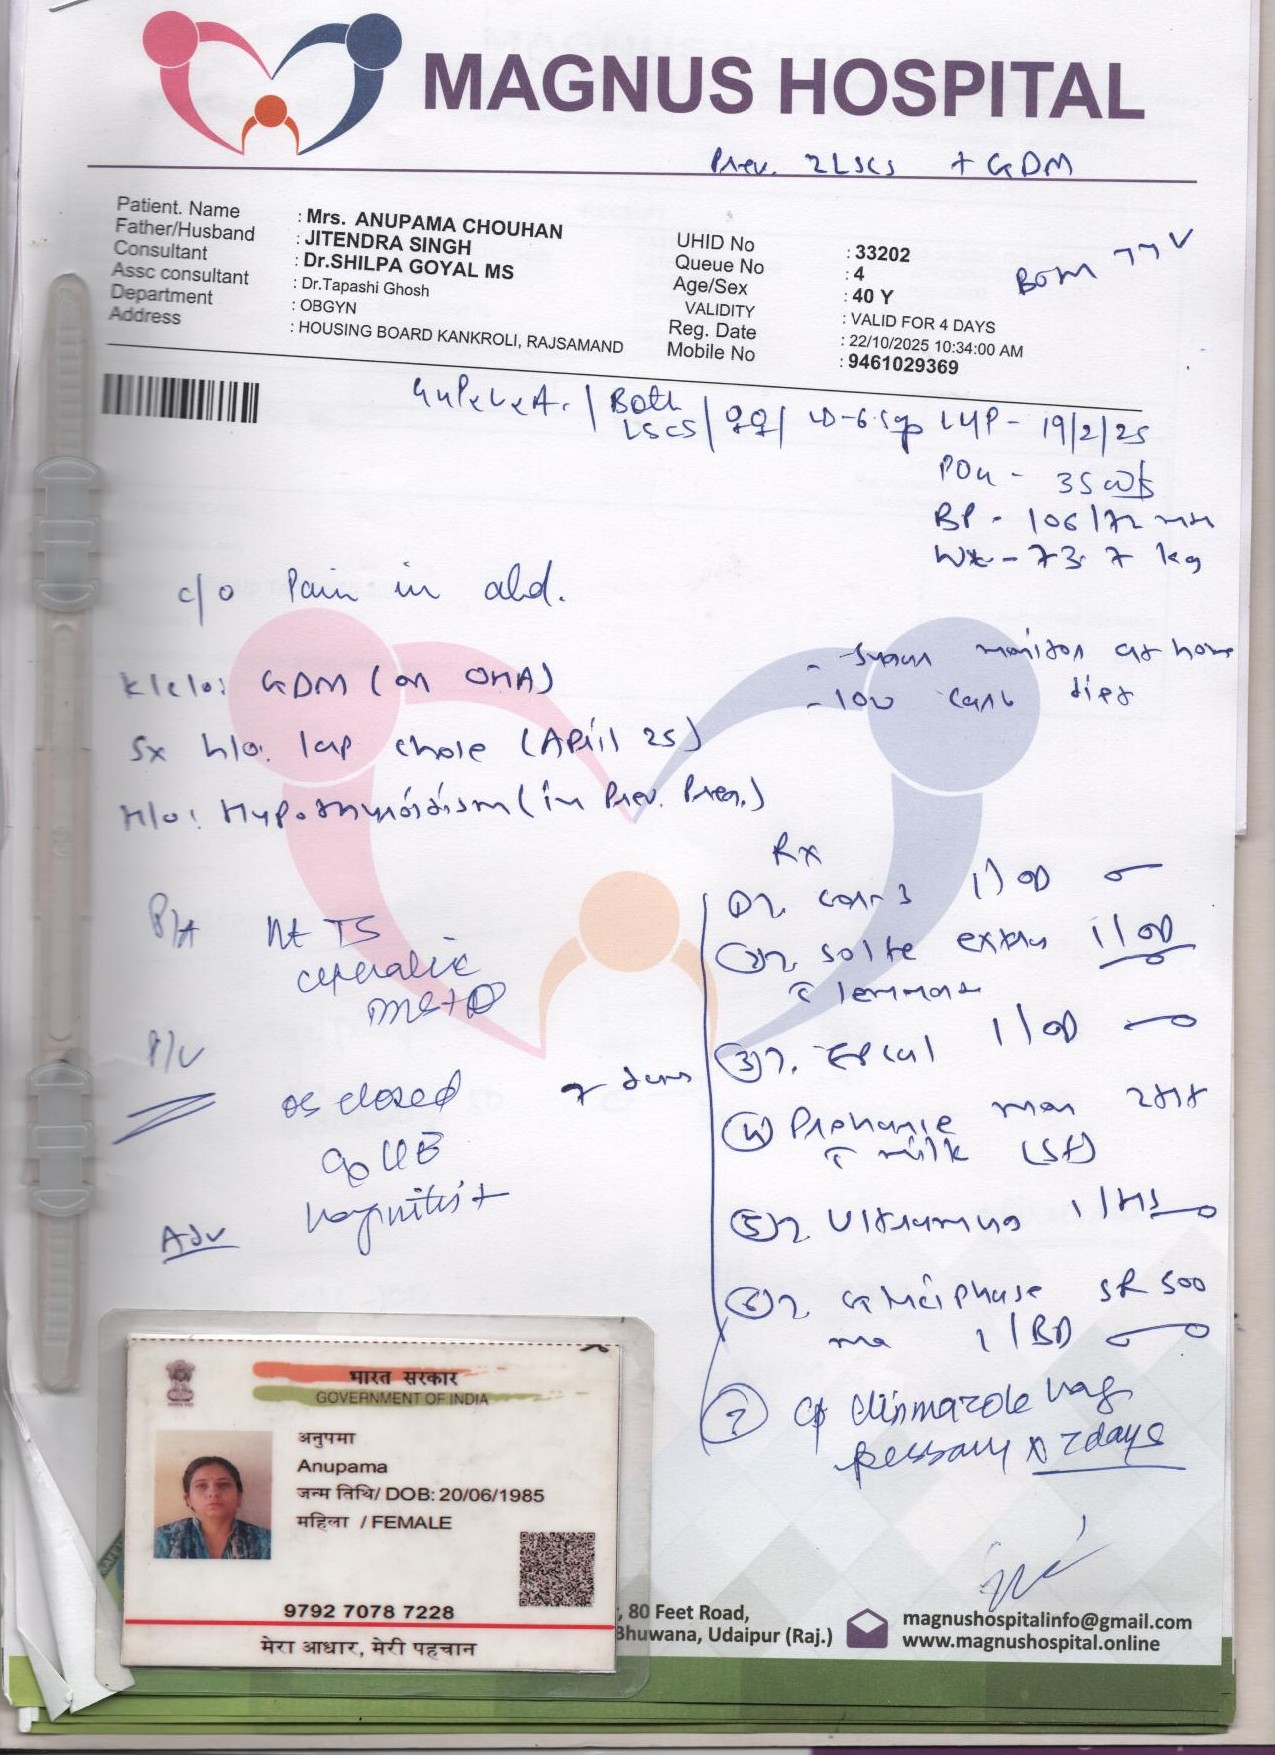 MAGNUS HOSPITAL
Prev. 2LSCS + GDM
Patient. Name : Mrs. ANUPAMA CHOUHAN
Father/Husband : JITENDRA SINGH
Consultant : Dr.SHILPA GOYAL MS
Assc consultant : Dr.Tapashi Ghosh
Department : OBGYN
Address : HOUSING BOARD KANKROLI, RAJSAMAND
UHID No : 33202
Queue No : 4
Age/Sex : 40 Y
VALIDITY : VALID FOR 4 DAYS
Reg. Date : 22/10/2025 10:34:00 AM
Mobile No : 9461029369
Both LSCS / LMP - 19/2/25
POG - 35 wks
BP - 106/72
Wt - 73.7 kg
c/o Pain in abd.
- Sugar monitor at home
- low carb diet
K/c/o: GDM (on OHA)
Sx h/o. lap chole (April 25)
H/o: Hypothyroidism (in Prev. Preg.)
Rx
P/A Ut TS
cephalic
① 1/OD
② extra 1/OD
③ 1/OD
P/V
os closed
7 days
④ milk
⑤ 1/HS
vaginitis +
Adv
⑥ SR 500
1/BD
⑦ vag
pessary x 7days
भारत सरकार
GOVERNMENT OF INDIA
अनुपमा
Anupama
जन्म तिथि/ DOB: 20/06/1985
महिला / FEMALE
9792 7078 7228
मेरा आधार, मेरी पहचान
, 80 Feet Road,
Bhuwana, Udaipur (Raj.)
magnushospitalinfo@gmail.com
www.magnushospital.online